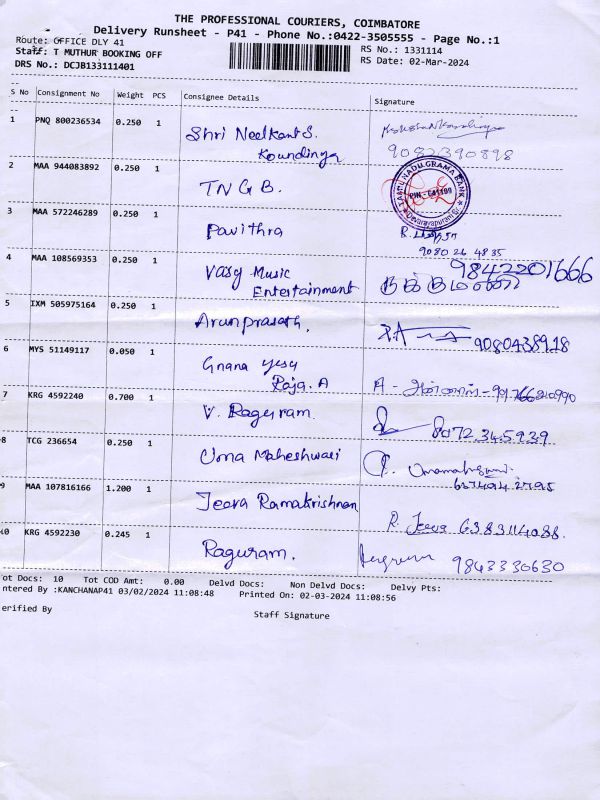 THE PROFESSIONAL COURIERS, COIMBATORE
Delivery Runsheet - P41 - Phone No.:0422-3505555 - Page No.:1
Route: OFFICE DLY 41
RS No.: 1331114
Staff: T MUTHUR BOOKING OFF
RS Date: 02-Mar-2024
DRS No.: DCJB133111401
S No Consignment No Weight PCS Consignee Details Signature
1 PNQ 800236534 0.250 1 Shri Neelkant S.
Koundinya
9082390898
2 MAA 944083892 0.250 1 T N G B.
TAMIL NADU GRAMA BANK
PIN - 641109
3 MAA 572246289 0.250 1 Pavithra
9080 26 4835
4 MAA 108569353 0.250 1 Vasy Music
Entertainment
9842201666
5 IXM 505975164 0.250 1 Arunprasath.
9080438918
6 MYS 51149117 0.050 1 Gnana yesu
Raja. A
7 KRG 4592240 0.700 1 V. Raguram.
8072345939
8 TCG 236654 0.250 1 Uma Maheshwari
9 MAA 107816166 1.200 1 Jeeva Ramakrishnan
R. Jeeva 6383114088.
10 KRG 4592230 0.245 1 Raguram.
9843330630
ot Docs: 10 Tot COD Amt: 0.00 Delvd Docs: Non Delvd Docs: Delvy Pts:
ntered By :KANCHANAP41 03/02/2024 11:08:48 Printed On: 02-03-2024 11:08:56
erified By
Staff Signature